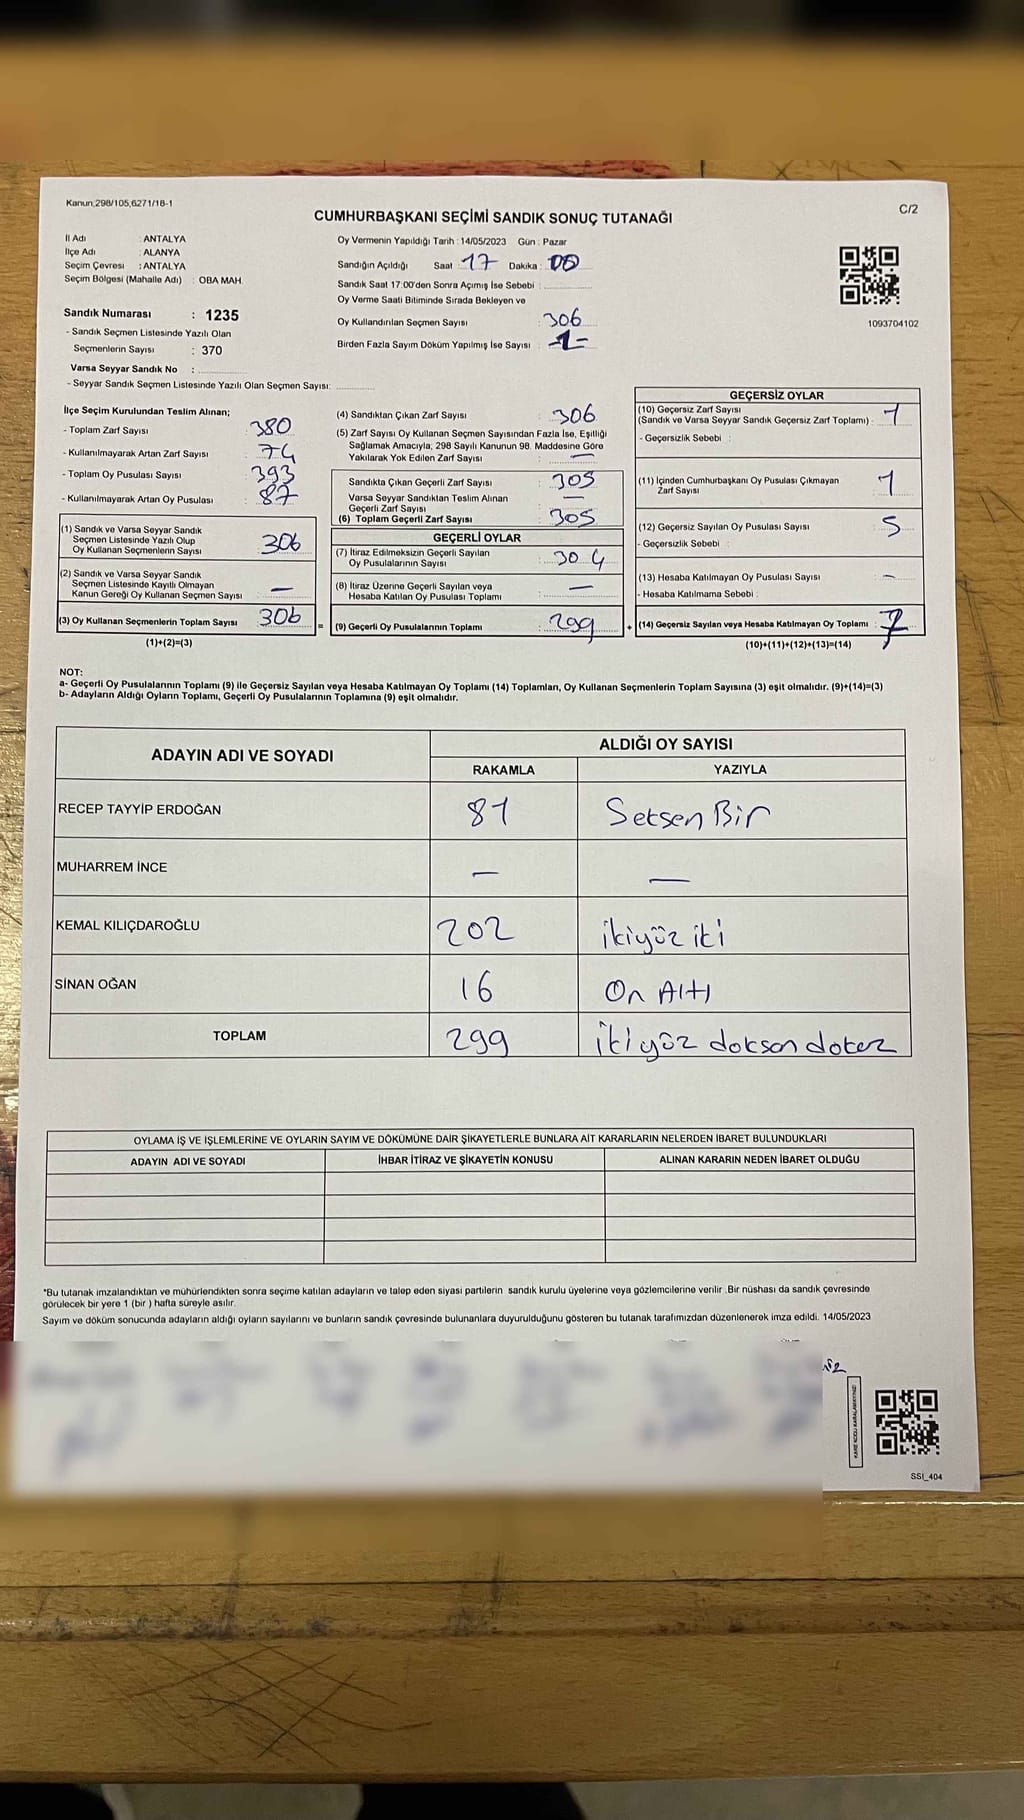 Kanun,298/105,6271/18-1
C/2
CUMHURBAŞKANI SEÇİMİ SANDIK SONUÇ TUTANAĞI
İl Adı : ANTALYA
İlçe Adı : ALANYA
Seçim Çevresi : ANTALYA
Seçim Bölgesi (Mahalle Adı) : OBA MAH.
Sandık Numarası : 1235
- Sandık Seçmen Listesinde Yazılı Olan
Seçmenlerin Sayısı : 370
Varsa Seyyar Sandık No :
- Seyyar Sandık Seçmen Listesinde Yazılı Olan Seçmen Sayısı:
Oy Vermenin Yapıldığı Tarih : 14/05/2023 Gün : Pazar
Sandığın Açıldığı Saat : 17 Dakika : 00
Sandık Saat 17:00'den Sonra Açımış İse Sebebi :
Oy Verme Saati Bitiminde Sırada Bekleyen ve
Oy Kullandırılan Seçmen Sayısı : 306
Birden Fazla Sayım Döküm Yapılmış İse Sayısı : -1-
1093704102
İlçe Seçim Kurulundan Teslim Alınan;
- Toplam Zarf Sayısı : 380
- Kullanılmayarak Artan Zarf Sayısı : 74
- Toplam Oy Pusulası Sayısı : 393
- Kullanılmayarak Artan Oy Pusulası : 87
(1) Sandık ve Varsa Seyyar Sandık
Seçmen Listesinde Yazılı Olup
Oy Kullanan Seçmenlerin Sayısı 306
(2) Sandık ve Varsa Seyyar Sandık
Seçmen Listesinde Kayıtlı Olmayan
Kanun Gereği Oy Kullanan Seçmen Sayısı : —
(3) Oy Kullanan Seçmenlerin Toplam Sayısı : 306 =
(1)+(2)=(3)
(4) Sandıktan Çıkan Zarf Sayısı : 306
(5) Zarf Sayısı Oy Kullanan Seçmen Sayısından Fazla İse, Eşitliği
Sağlamak Amacıyla; 298 Sayılı Kanunun 98. Maddesine Göre
Yakılarak Yok Edilen Zarf Sayısı : —
Sandıkta Çıkan Geçerli Zarf Sayısı : 305
Varsa Seyyar Sandıktan Teslim Alınan
Geçerli Zarf Sayısı : —
(6) Toplam Geçerli Zarf Sayısı : 305
GEÇERLİ OYLAR
(7) İtiraz Edilmeksizin Geçerli Sayılan
Oy Pusulalarının Sayısı : 304
(8) İtiraz Üzerine Geçerli Sayılan veya
Hesaba Katılan Oy Pusulası Toplamı : —
(9) Geçerli Oy Pusulalarının Toplamı : 299 +
GEÇERSİZ OYLAR
(10) Geçersiz Zarf Sayısı
(Sandık ve Varsa Seyyar Sandık Geçersiz Zarf Toplamı) : 1
- Geçersizlik Sebebi :
(11) İçinden Cumhurbaşkanı Oy Pusulası Çıkmayan
Zarf Sayısı : 1
(12) Geçersiz Sayılan Oy Pusulası Sayısı : 5
- Geçersizlik Sebebi :
(13) Hesaba Katılmayan Oy Pusulası Sayısı : —
- Hesaba Katılmama Sebebi :
(14) Geçersiz Sayılan veya Hesaba Katılmayan Oy Toplamı : 7
(10)+(11)+(12)+(13)=(14)
NOT:
a- Geçerli Oy Pusulalarının Toplamı (9) ile Geçersiz Sayılan veya Hesaba Katılmayan Oy Toplamı (14) Toplamları, Oy Kullanan Seçmenlerin Toplam Sayısına (3) eşit olmalıdır. (9)+(14)=(3)
b- Adayların Aldığı Oyların Toplamı, Geçerli Oy Pusulalarının Toplamına (9) eşit olmalıdır.
ADAYIN ADI VE SOYADI ALDIĞI OY SAYISI
RAKAMLA YAZIYLA
RECEP TAYYİP ERDOĞAN 81 Seksen Bir
MUHARREM İNCE — —
KEMAL KILIÇDAROĞLU 202 ikiyüz iki
SİNAN OĞAN 16 On Altı
TOPLAM 299 ikiyüz doksan dokuz
OYLAMA İŞ VE İŞLEMLERİNE VE OYLARIN SAYIM VE DÖKÜMÜNE DAİR ŞİKAYETLERLE BUNLARA AİT KARARLARIN NELERDEN İBARET BULUNDUKLARI
ADAYIN ADI VE SOYADI İHBAR İTİRAZ VE ŞİKAYETİN KONUSU ALINAN KARARIN NEDEN İBARET OLDUĞU
*Bu tutanak imzalandıktan ve mühürlendikten sonra seçime katılan adayların ve talep eden siyasi partilerin sandık kurulu üyelerine veya gözlemcilerine verilir .Bir nüshası da sandık çevresinde
görülecek bir yere 1 (bir ) hafta süreyle asılır.
Sayım ve döküm sonucunda adayların aldığı oyların sayılarını ve bunların sandık çevresinde bulunanlara duyurulduğunu gösteren bu tutanak tarafımızdan düzenlenerek imza edildi. 14/05/2023
KARE KODU KARALAMAYINIZ!
SSI_404